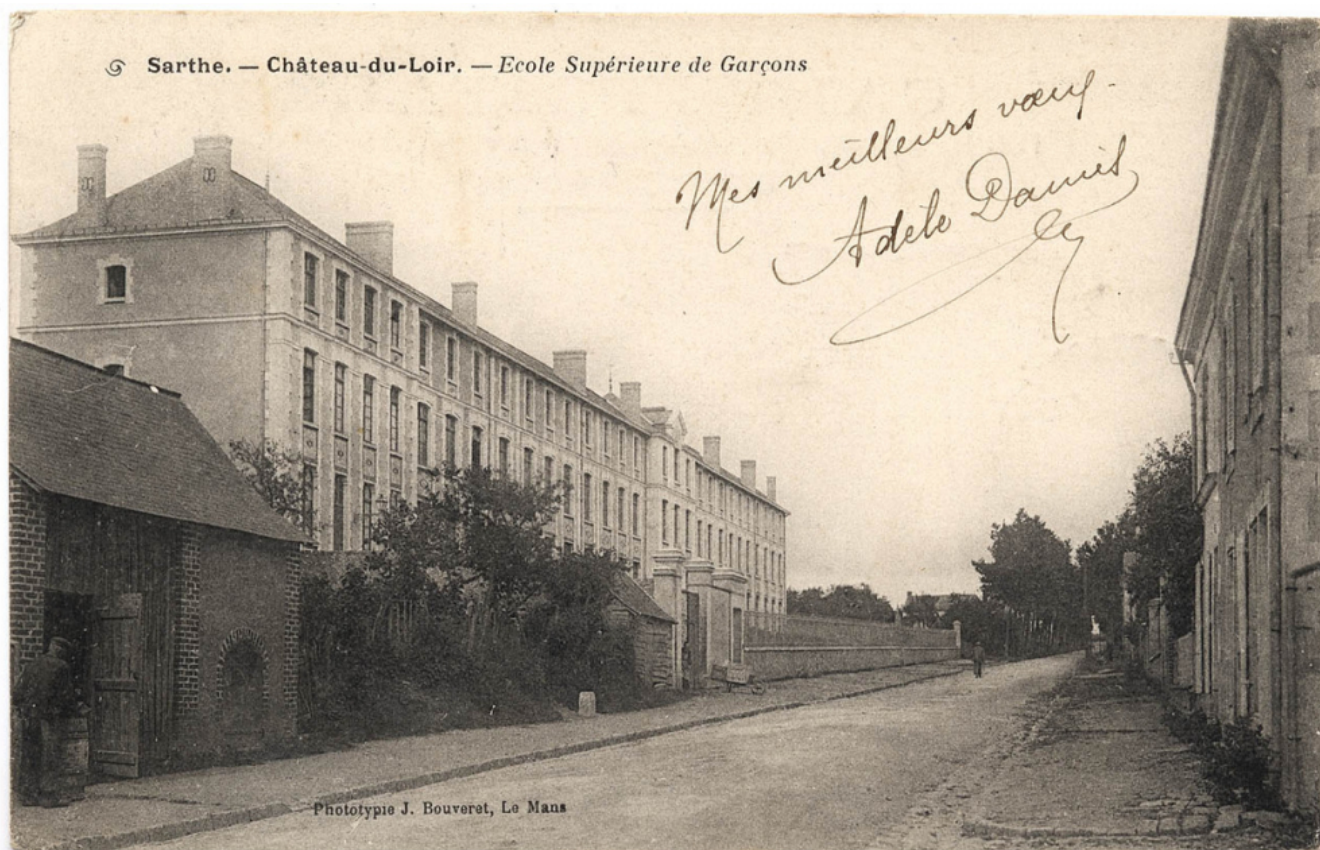 Sarthe. — Château-du-Loir. — Ecole Supérieure de Garçons
Mes meilleurs vœux.
Adèle
Phototypie J. Bouveret, Le Mans